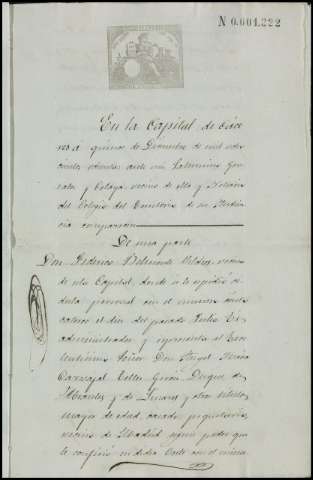 N 0.601.222
En la Capital de Cáce
res a quince de Diciembre de mil ocho
cientos ochenta ante mi Saturnino Gon
zalez y Celaya vecino de ella y Notario
del Colegio del Territorio de su Audien
cia comparecen
De una parte
Don Federico Belmonte Valdez, vecino
de esta Capital, donde se le expidió cé
dula personal con el número
catorce el dia del pasado Julio
administrador y representa al Exce
lentísimo Señor Don Angel Maria
Carvajal Tellez Girón Duque de
Abrantes y de Linares y otros titulos
mayor de edad, casado propietario,
vecino de Madrid segun poder que
le confirió en dicha Corte con el